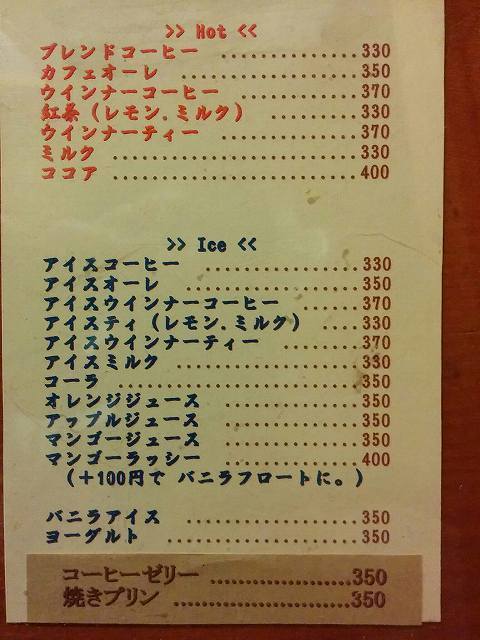 >> Hot <<
ブレンドコーヒー ..................330
カフェオーレ ....................350
ウインナーコーヒー ...............370
紅茶(レモン.ミルク) ............330
ウインナーティー .................370
ミルク ...........................330
ココア ...........................400
>> Ice <<
アイスコーヒー ..................330
アイスオーレ ....................350
アイスウインナーコーヒー .........370
アイスティ(レモン.ミルク) ......330
アイスウインナーティー ..........370
アイスミルク .....................330
コーラ ..........................350
オレンジジュース ................350
アップルジュース ................350
マンゴージュース ................350
マンゴーラッシー ................400
(+100円で バニラフロートに。)
バニラアイス ....................350
ヨーグルト ......................350
コーヒーゼリー ..................350
焼きプリン ......................350